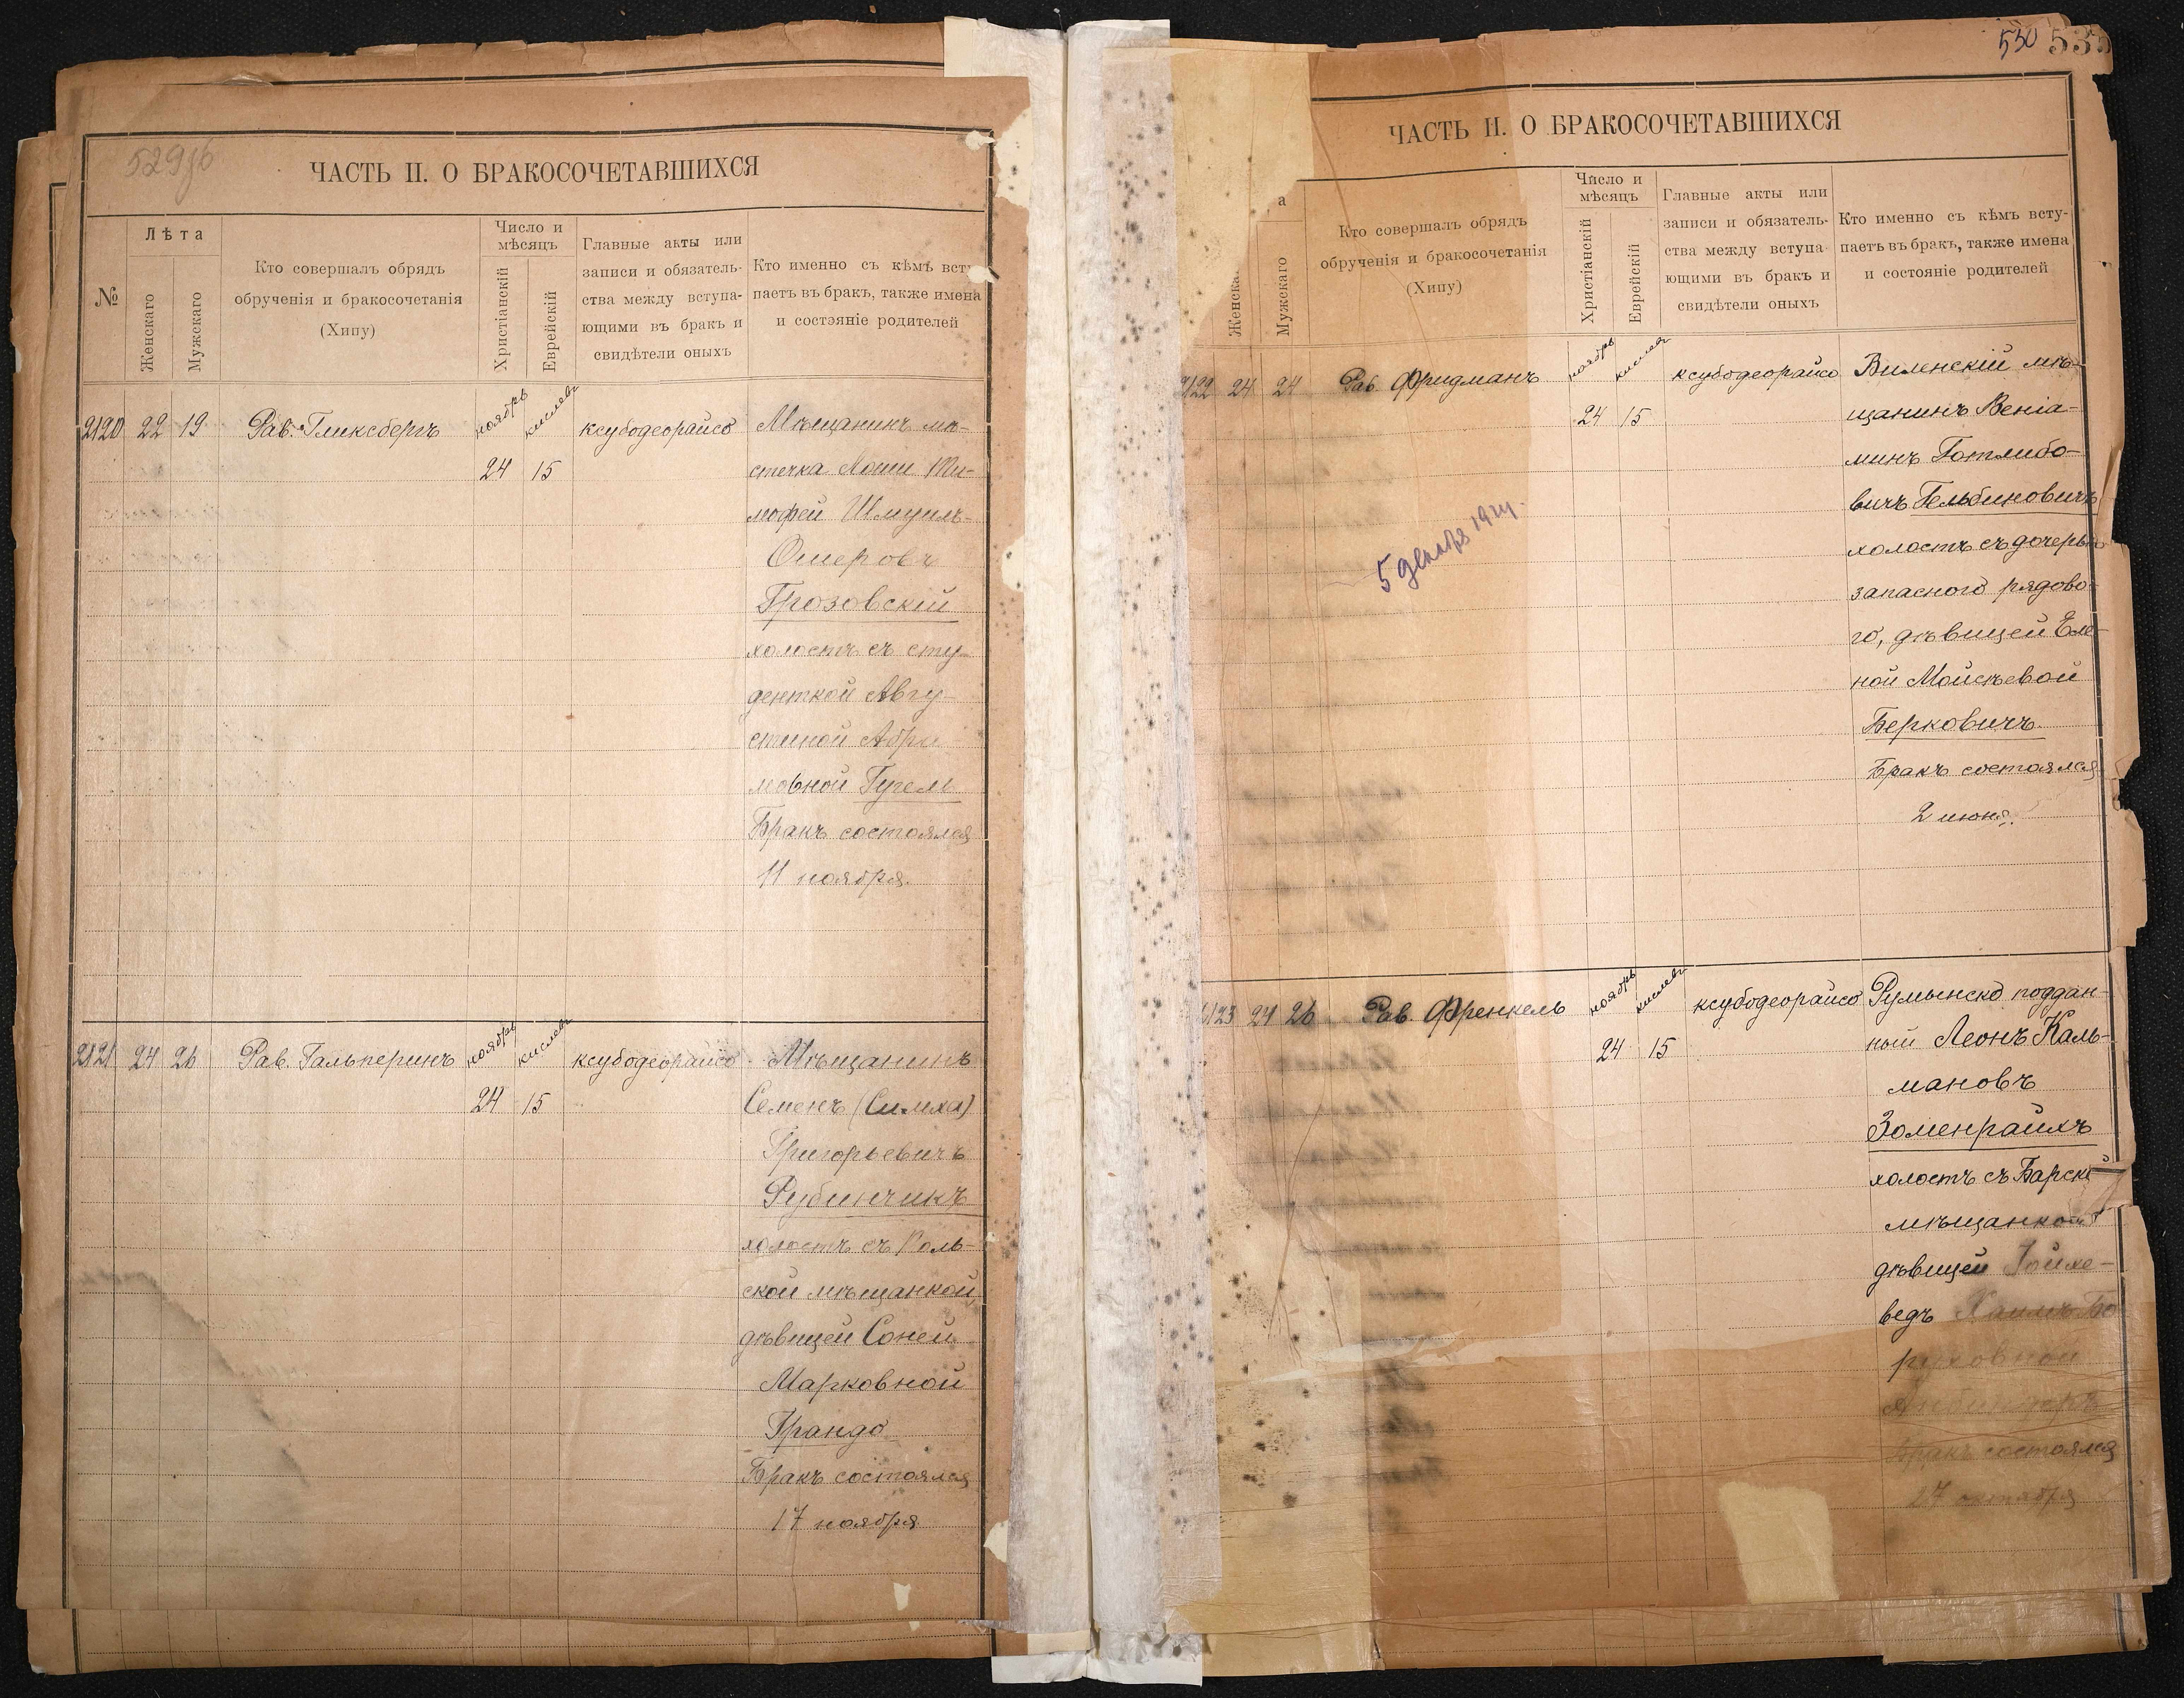 529об
ЧАСТЬ II. О БРАКОСОЧЕТАВШИХСЯ
№
Лѣта
Женскаго
Мужскаго
Кто совершалъ обрядъ
обрученія и бракосочетанія
(Хипу)
Число и
мѣсяцъ
Христіанскій
Еврейскій
Главные акты или
записи и обязатель-
ства между вступа-
ющими въ бракъ и
свидѣтели оныхъ
Кто именно съ кѣмъ всту-
паетъ въ бракъ, также имена
и состояніе родителей
2120 22 19 Рав. Гликсбергъ ноябрь кислевъ ксубодеорайсо Мѣщанинъ мѣ-
24 15 стечка Ти-
мофей Шмуилъ-
Ошеровъ
Грозовскій
холостъ съ сту-
денткой Авгу-
стиной Абра
мовной Гугель
Бракъ состоялся
11 ноября.
2121 24 26 Рав. Гальперинъ ноябрь кислевъ ксубодеорайсо Мѣщанинъ
24 15 Семенъ (Симха)
Григорьевичъ
Рубинчикъ
холостъ съ
ской мѣщанкой,
дѣвицей Соней
Марковной
Грандо
Бракъ состоялся
17 ноября
530 535
ЧАСТЬ II. О БРАКОСОЧЕТАВШИХСЯ
а
Женска
Мужскаго
Кто совершалъ обрядъ
обрученія и бракосочетанія
(Хипу)
Число и
мѣсяцъ
Христіанскій
Еврейскій
Главные акты или
записи и обязатель-
ства между вступа
ющими въ бракъ и
свидѣтели оныхъ
Кто именно съ кѣмъ всту-
паетъ въ бракъ, также имена
и состояніе родителей
2122 24 24 Рав. Фридманъ ноябрь кислевъ ксубодеорайсо Виленскій мѣ-
24 15 щанинъ Веніа-
минъ Готлибо-
вичъ Гельбиновичъ
холостъ съ дочерью
запасного рядово-
го, дѣвицей Еле-
ной Мойсѣевой
Берковичъ
Бракъ состоялся
2 июня.
5 декабря
2123 24 26 Рав. Френкель ноябрь кислевъ ксубодеорайсо Румынско поддан-
24 15 ный Леонъ Каль-
мановъ
Зоменрайхъ
холостъ съ Барской
мѣщанкой
дѣвицей Іойхе-
ведъ Хаимъ Бо
руховной
Бракъ состоялся
27 октября